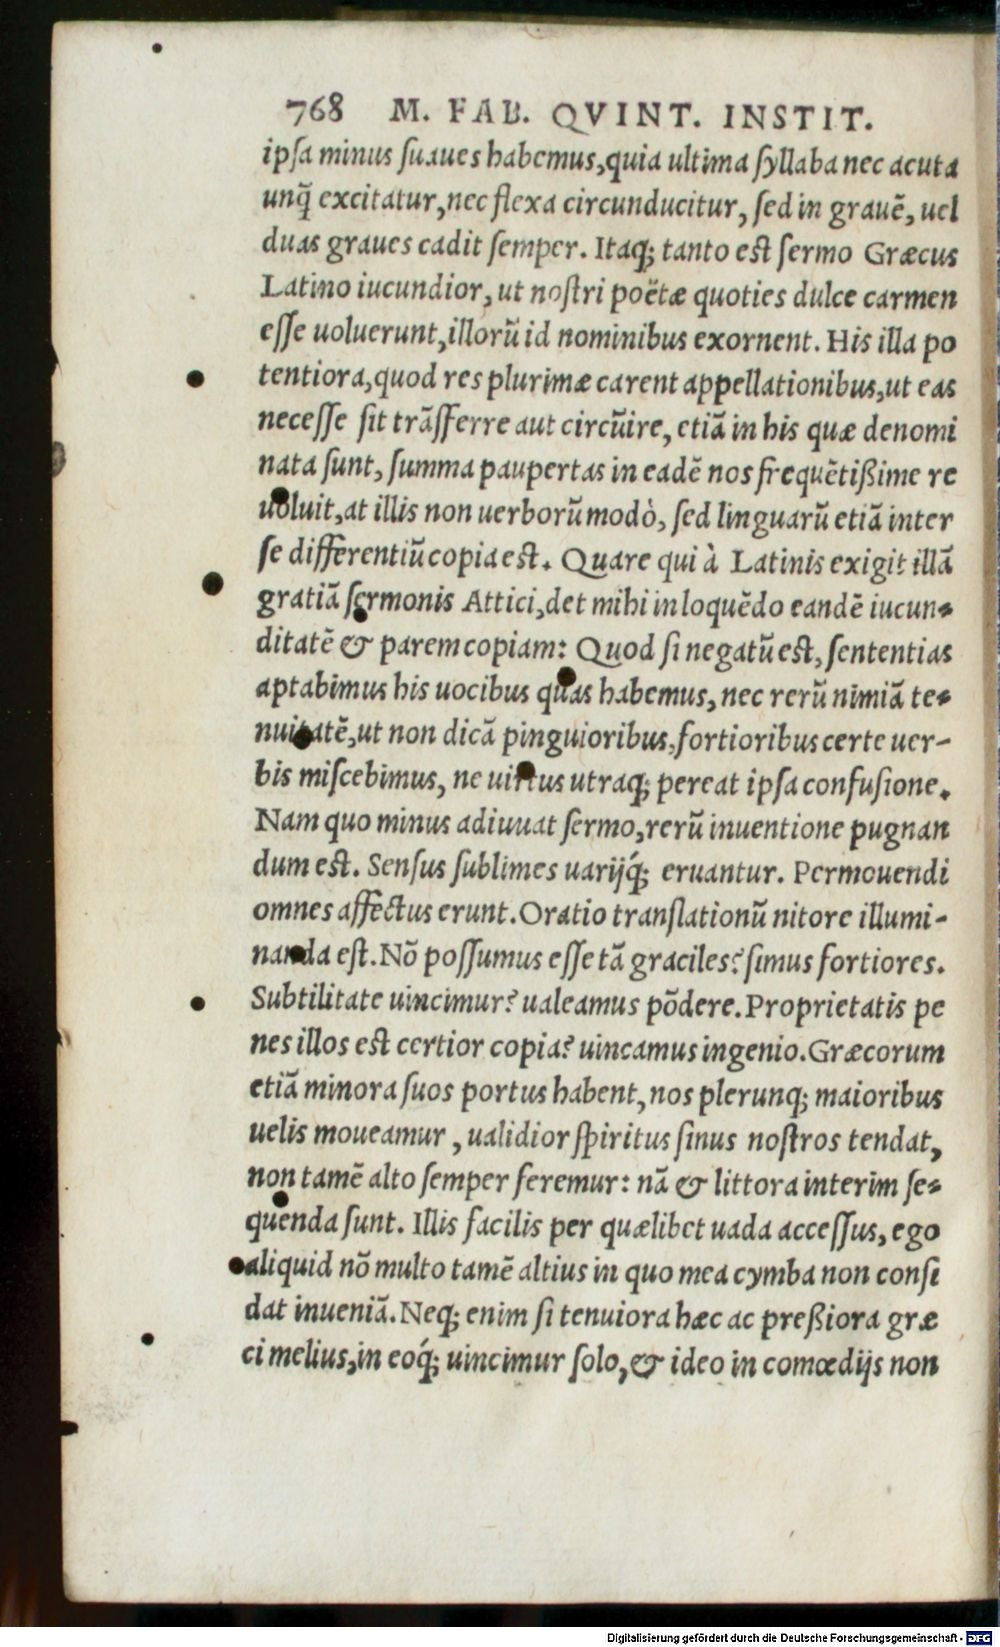 768 M. FAB. QVINT. INSTIT.
ipſa minus ſuaues habemus,quia ultima ſyllaba nec acuta
unq̃ excitatur,nec flexa circunducitur, ſed in grauẽ, uel
duas graues cadit ſemper. Itaq; tanto eſt ſermo Græcus
Latino iucundior, ut noſtri poëtæ quoties dulce carmen
eſſe uoluerunt,illorũ id nominibus exornent. His illa po
tentiora,quod res plurimæ carent appellationibus,ut eas
neceſſe ſit trãſferre aut circũire, etiã in his quæ denomi
nata ſunt, ſumma paupertas in eadẽ nos frequẽtißime re
uoluit,at illis non uerborũ modò, ſed linguarũ etiã inter
ſe differentiũ copia eſt. Quare qui à Latinis exigit illã
gratiã ſermonis Attici,det mihi in loquẽdo eandẽ iucun-
ditatẽ & parem copiam: Quod ſi negatũ eſt, ſententias
aptabimus his uocibus quas habemus, nec rerũ nimiã te-
nuitatẽ,ut non dicã pinguioribus,fortioribus certe uer-
bis miſcebimus, ne uirtus utraq; pereat ipſa confuſione.
Nam quo minus adiuuat ſermo,rerũ inuentione pugnan
dum eſt. Senſus ſublimes uarijq́; eruantur. Permouendi
omnes affectus erunt.Oratio tranſlationũ nitore illumi-
nanda eſt.Nõ poſſumus eſſe tã graciles? ſimus fortiores.
Subtilitate uincimur? ualeamus põdere.Proprietatis pe
nes illos eſt certior copia? uincamus ingenio.Græcorum
etiã minora ſuos portus habent, nos plerunq; maioribus
uelis moueamur , ualidior ſpiritus ſinus noſtros tendat,
non tamẽ alto ſemper feremur: nã & littora interim ſe-
quenda ſunt. Illis facilis per quælibet uada acceſſus, ego
aliquid nõ multo tamẽ altius in quo mea cymba non conſi
dat inueniã. Neq; enim ſi tenuiora hæc ac preßiora græ
ci melius,in eoq́; uincimur ſolo,& ideo in comœdijs non
Digitalisierung gefördert durch die Deutsche Forschungsgemeinschaft - DFG